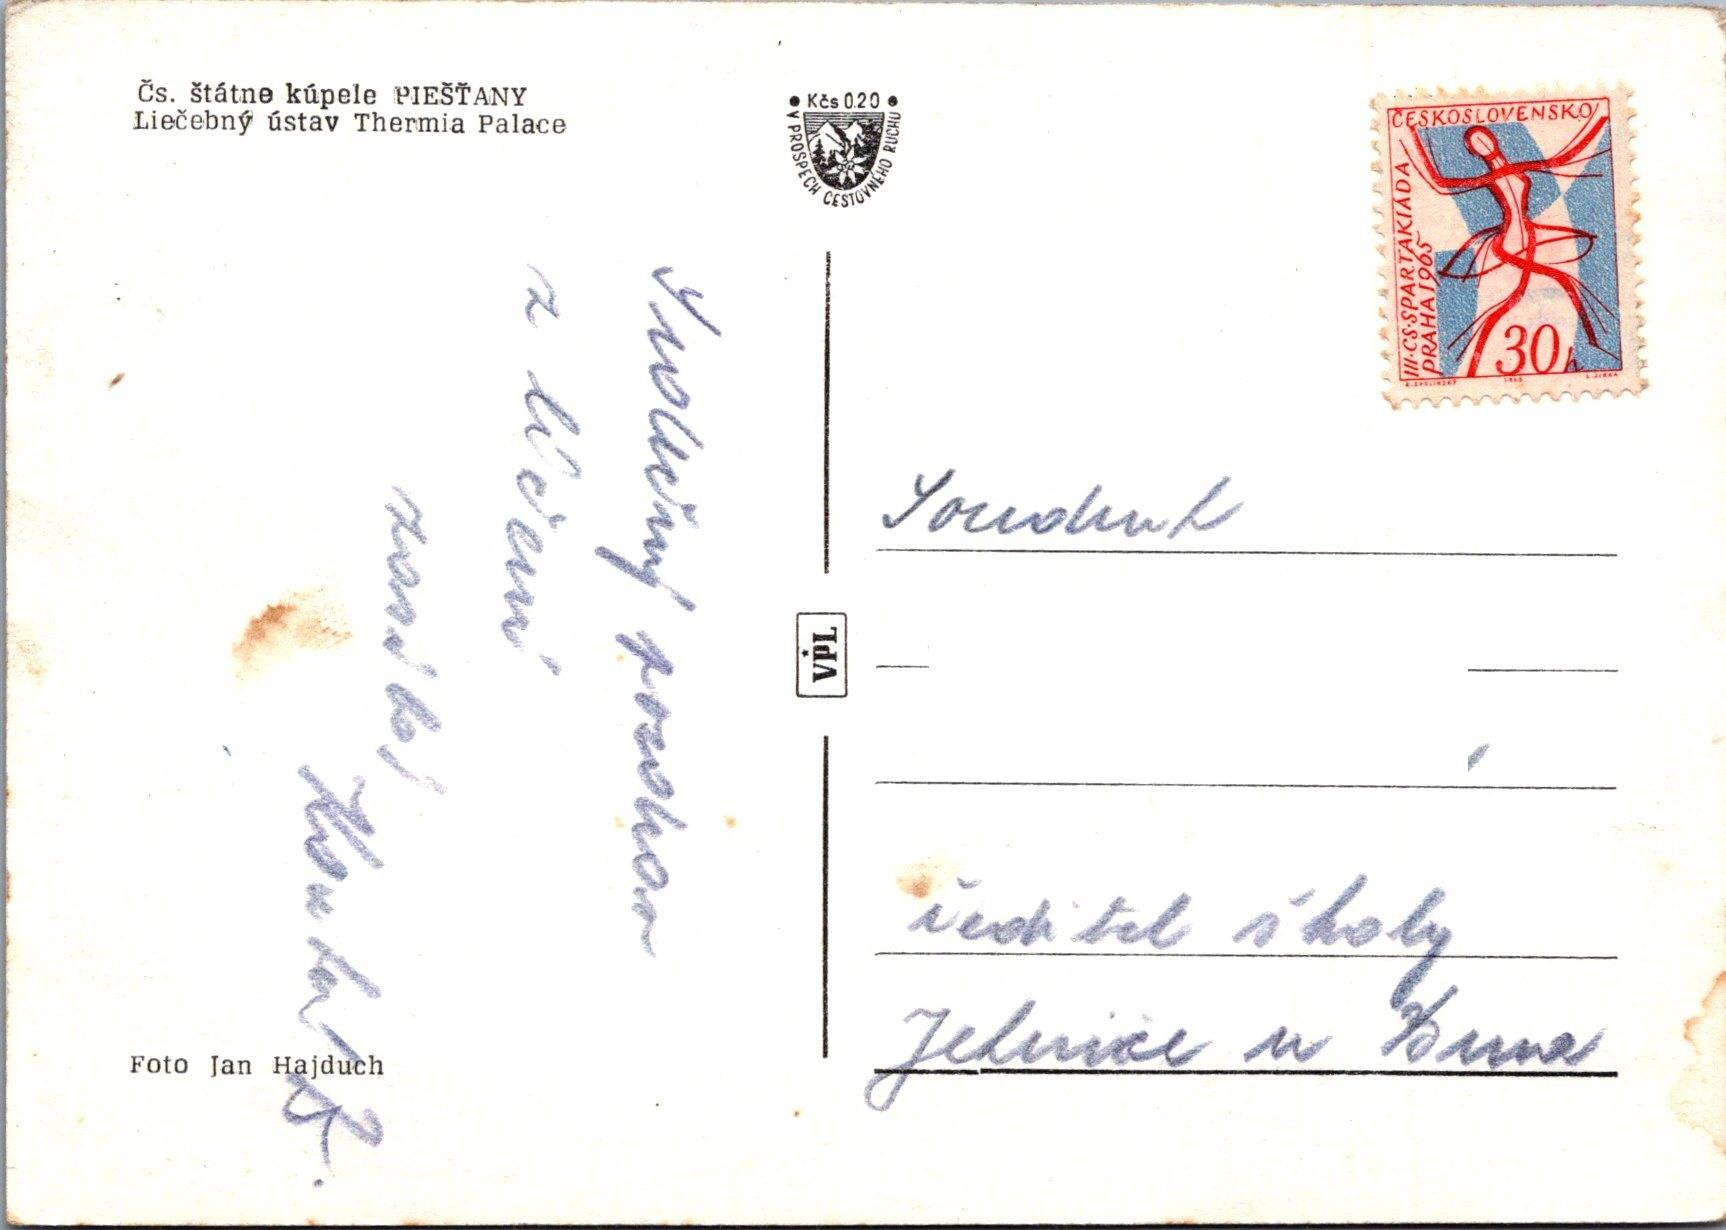 Čs. štátne kúpele PIEŠŤANY
Liečebný ústav Thermia Palace
• Kčs 0.20 •
V PROSPECH CESTOVNÉHO RUCHU
ČESKOSLOVENSKO
III·CS·SPARTAKIÁDA
PRAHA 1965
30 h
Srdečný pozdrav
z léčení
zasílá
VPL
Soudruh
ředitel školy
Jehnice u Brna
Foto Jan Hajduch